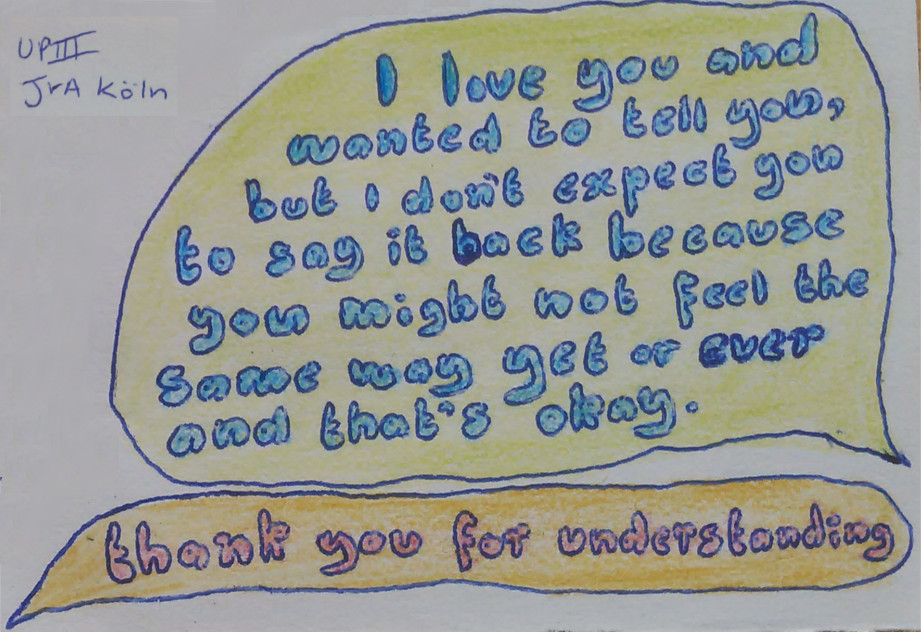 UPIII
JrA Köln
I love you and
wanted to tell you,
but I don't expect you
to say it back because
you might not feel the
same way yet or ever
and that's okay.
thank you for understanding